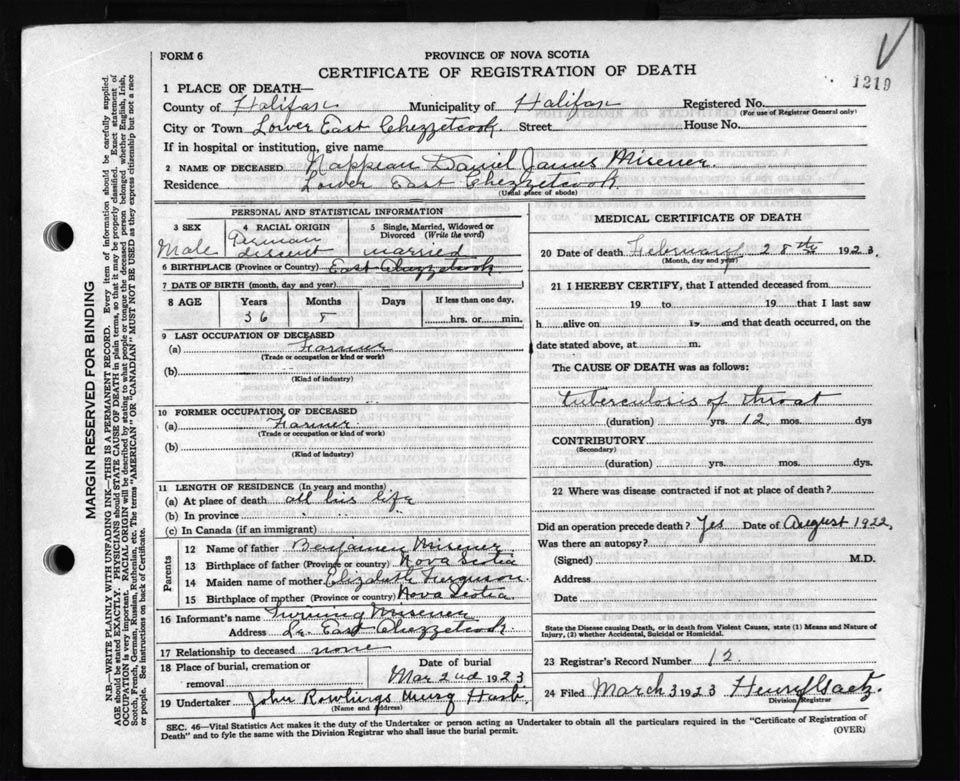 FORM 6
PROVINCE OF NOVA SCOTIA
CERTIFICATE OF REGISTRATION OF DEATH
1219
1 PLACE OF DEATH—
County of Halifax Municipality of Halifax Registered No.
(For use of Registrar General only)
City or Town Lower East Chezzetcook Street House No.
If in hospital or institution, give name
2 NAME OF DECEASED Nappean Daniel James Misener.
Residence Lower East Chezzetcook.
(Usual place of abode)
PERSONAL AND STATISTICAL INFORMATION
3 SEX 4 RACIAL ORIGIN 5 Single, Married, Widowed or Divorced (Write the word)
Male German discent married
6 BIRTHPLACE (Province or Country) East Chezzetcook
7 DATE OF BIRTH (month, day and year)
8 AGE Years Months Days If less than one day,
36 5 hrs. or min.
9 LAST OCCUPATION OF DECEASED
(a) Farmer
(Trade or occupation or kind or work)
(b)
(Kind of industry)
10 FORMER OCCUPATION OF DECEASED
(a) Farmer
(Trade or occupation or kind or work)
(b)
(Kind of industry)
11 LENGTH OF RESIDENCE (In years and months)
(a) At place of death all his life
(b) In province " " "
(c) In Canada (if an immigrant)
Parents
12 Name of father Benjamen Misener
13 Birthplace of father (Province or country) Nova Scotia
14 Maiden name of mother Elizabeth Ferguson
15 Birthplace of mother (Province or country) Nova Scotia.
16 Informant's name Misener
Address Lr. East Chezzetcook
17 Relationship to deceased none
18 Place of burial, cremation or removal
Date of burial
Mar 2nd 1923
19 Undertaker John Rowlings Musq Harb.
(Name and address)
MEDICAL CERTIFICATE OF DEATH
20 Date of death February 28th 1923.
(Month, day and year)
21 I HEREBY CERTIFY, that I attended deceased from
19 to 19 that I last saw
h alive on 19 and that death occurred, on the
date stated above, at m.
The CAUSE OF DEATH was as follows:
tuberculosis of throat
(duration) yrs. 12 mos. dys
CONTRIBUTORY
(Secondary)
(duration) yrs. mos. dys.
22 Where was disease contracted if not at place of death?
Did an operation precede death? Yes Date of August 1922.
Was there an autopsy?
(Signed) M.D.
Address
Date
State the Disease causing Death, or in death from Violent Causes, state (1) Means and Nature of
Injury, (2) whether Accidental, Suicidal or Homicidal.
23 Registrar's Record Number 12.
24 Filed March 3 1923 Henry Gaetz.
Division Registrar
SEC. 46—Vital Statistics Act makes it the duty of the Undertaker or person acting as Undertaker to obtain all the particulars required in the "Certificate of Registration of
Death" and to fyle the same with the Division Registrar who shall issue the burial permit.
(OVER)
MARGIN RESERVED FOR BINDING
N.B.—WRITE PLAINLY WITH UNFADING INK—THIS IS A PERMANENT RECORD. Every item of information should be carefully supplied.
AGE should be stated EXACTLY. PHYSICIANS should STATE CAUSE OF DEATH in plain terms, so that it may be properly classified. Exact statement of
OCCUPATION is very important. RACIAL ORIGIN will be described by stating to what people or tongue the deceased person belonged whether English, Irish,
Scotch, French, German, Russian, Ruthenian, etc. The terms "AMERICAN" OR "CANADIAN" MUST NOT BE USED as they express citizenship but not a race
or people. See instructions on back of Certificate.